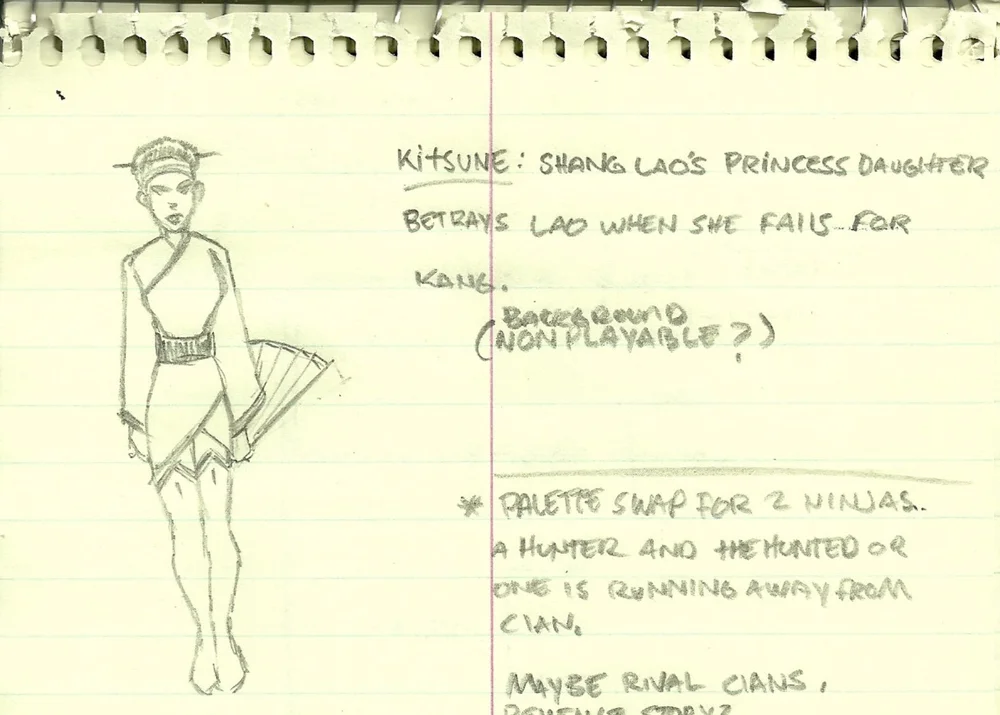 KITSUNE: SHANG LAO'S PRINCESS DAUGHTER
BETRAYS LAO WHEN SHE FALLS FOR
KANG.
BACKGROUND
(NONPLAYABLE?)
* PALETTE SWAP FOR 2 NINJAS.
A HUNTER AND THE HUNTED OR
ONE IS RUNNING AWAY FROM
CLAN.
MAYBE RIVAL CLANS,
REVENGE STORY?